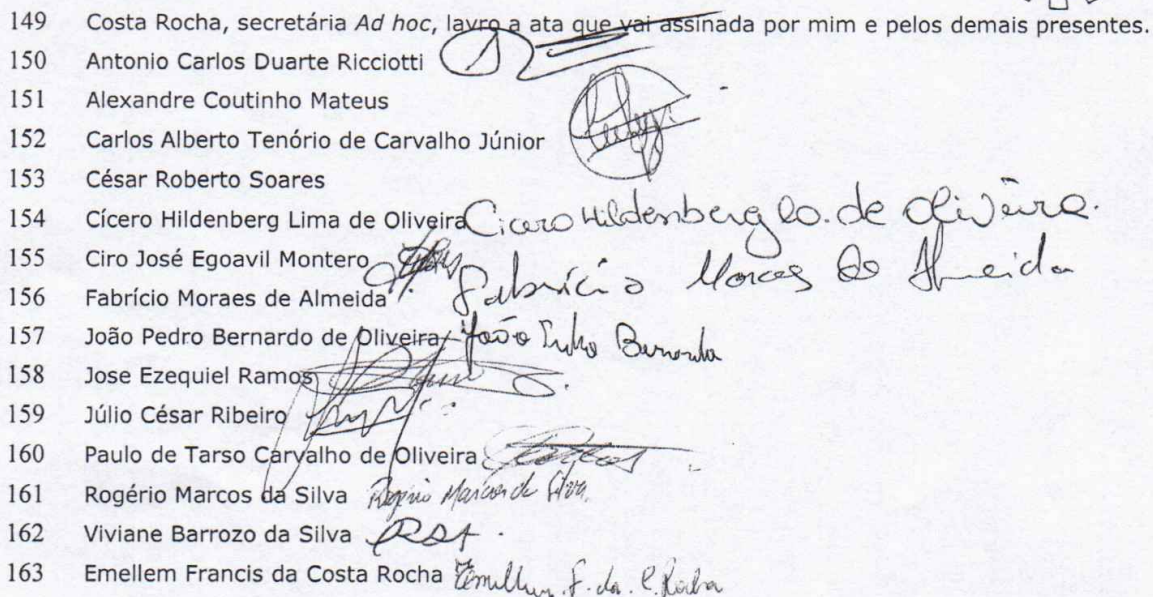 149 Costa Rocha, secretária Ad hoc, lavro a ata que vai assinada por mim e pelos demais presentes.
150 Antonio Carlos Duarte Ricciotti
151 Alexandre Coutinho Mateus
152 Carlos Alberto Tenório de Carvalho Júnior
153 César Roberto Soares
154 Cícero Hildenberg Lima de Oliveira Cicero Hildenberg de Oliveira
155 Ciro José Egoavil Montero
156 Fabrício Moraes de Almeida Fabrício Moraes de Almeida
157 João Pedro Bernardo de Oliveira João Pedro Bernardo
158 Jose Ezequiel Ramos
159 Júlio César Ribeiro
160 Paulo de Tarso Carvalho de Oliveira
161 Rogério Marcos da Silva Rogério Marcos da Silva
162 Viviane Barrozo da Silva
163 Emellem Francis da Costa Rocha Emellem F. da C. Rocha